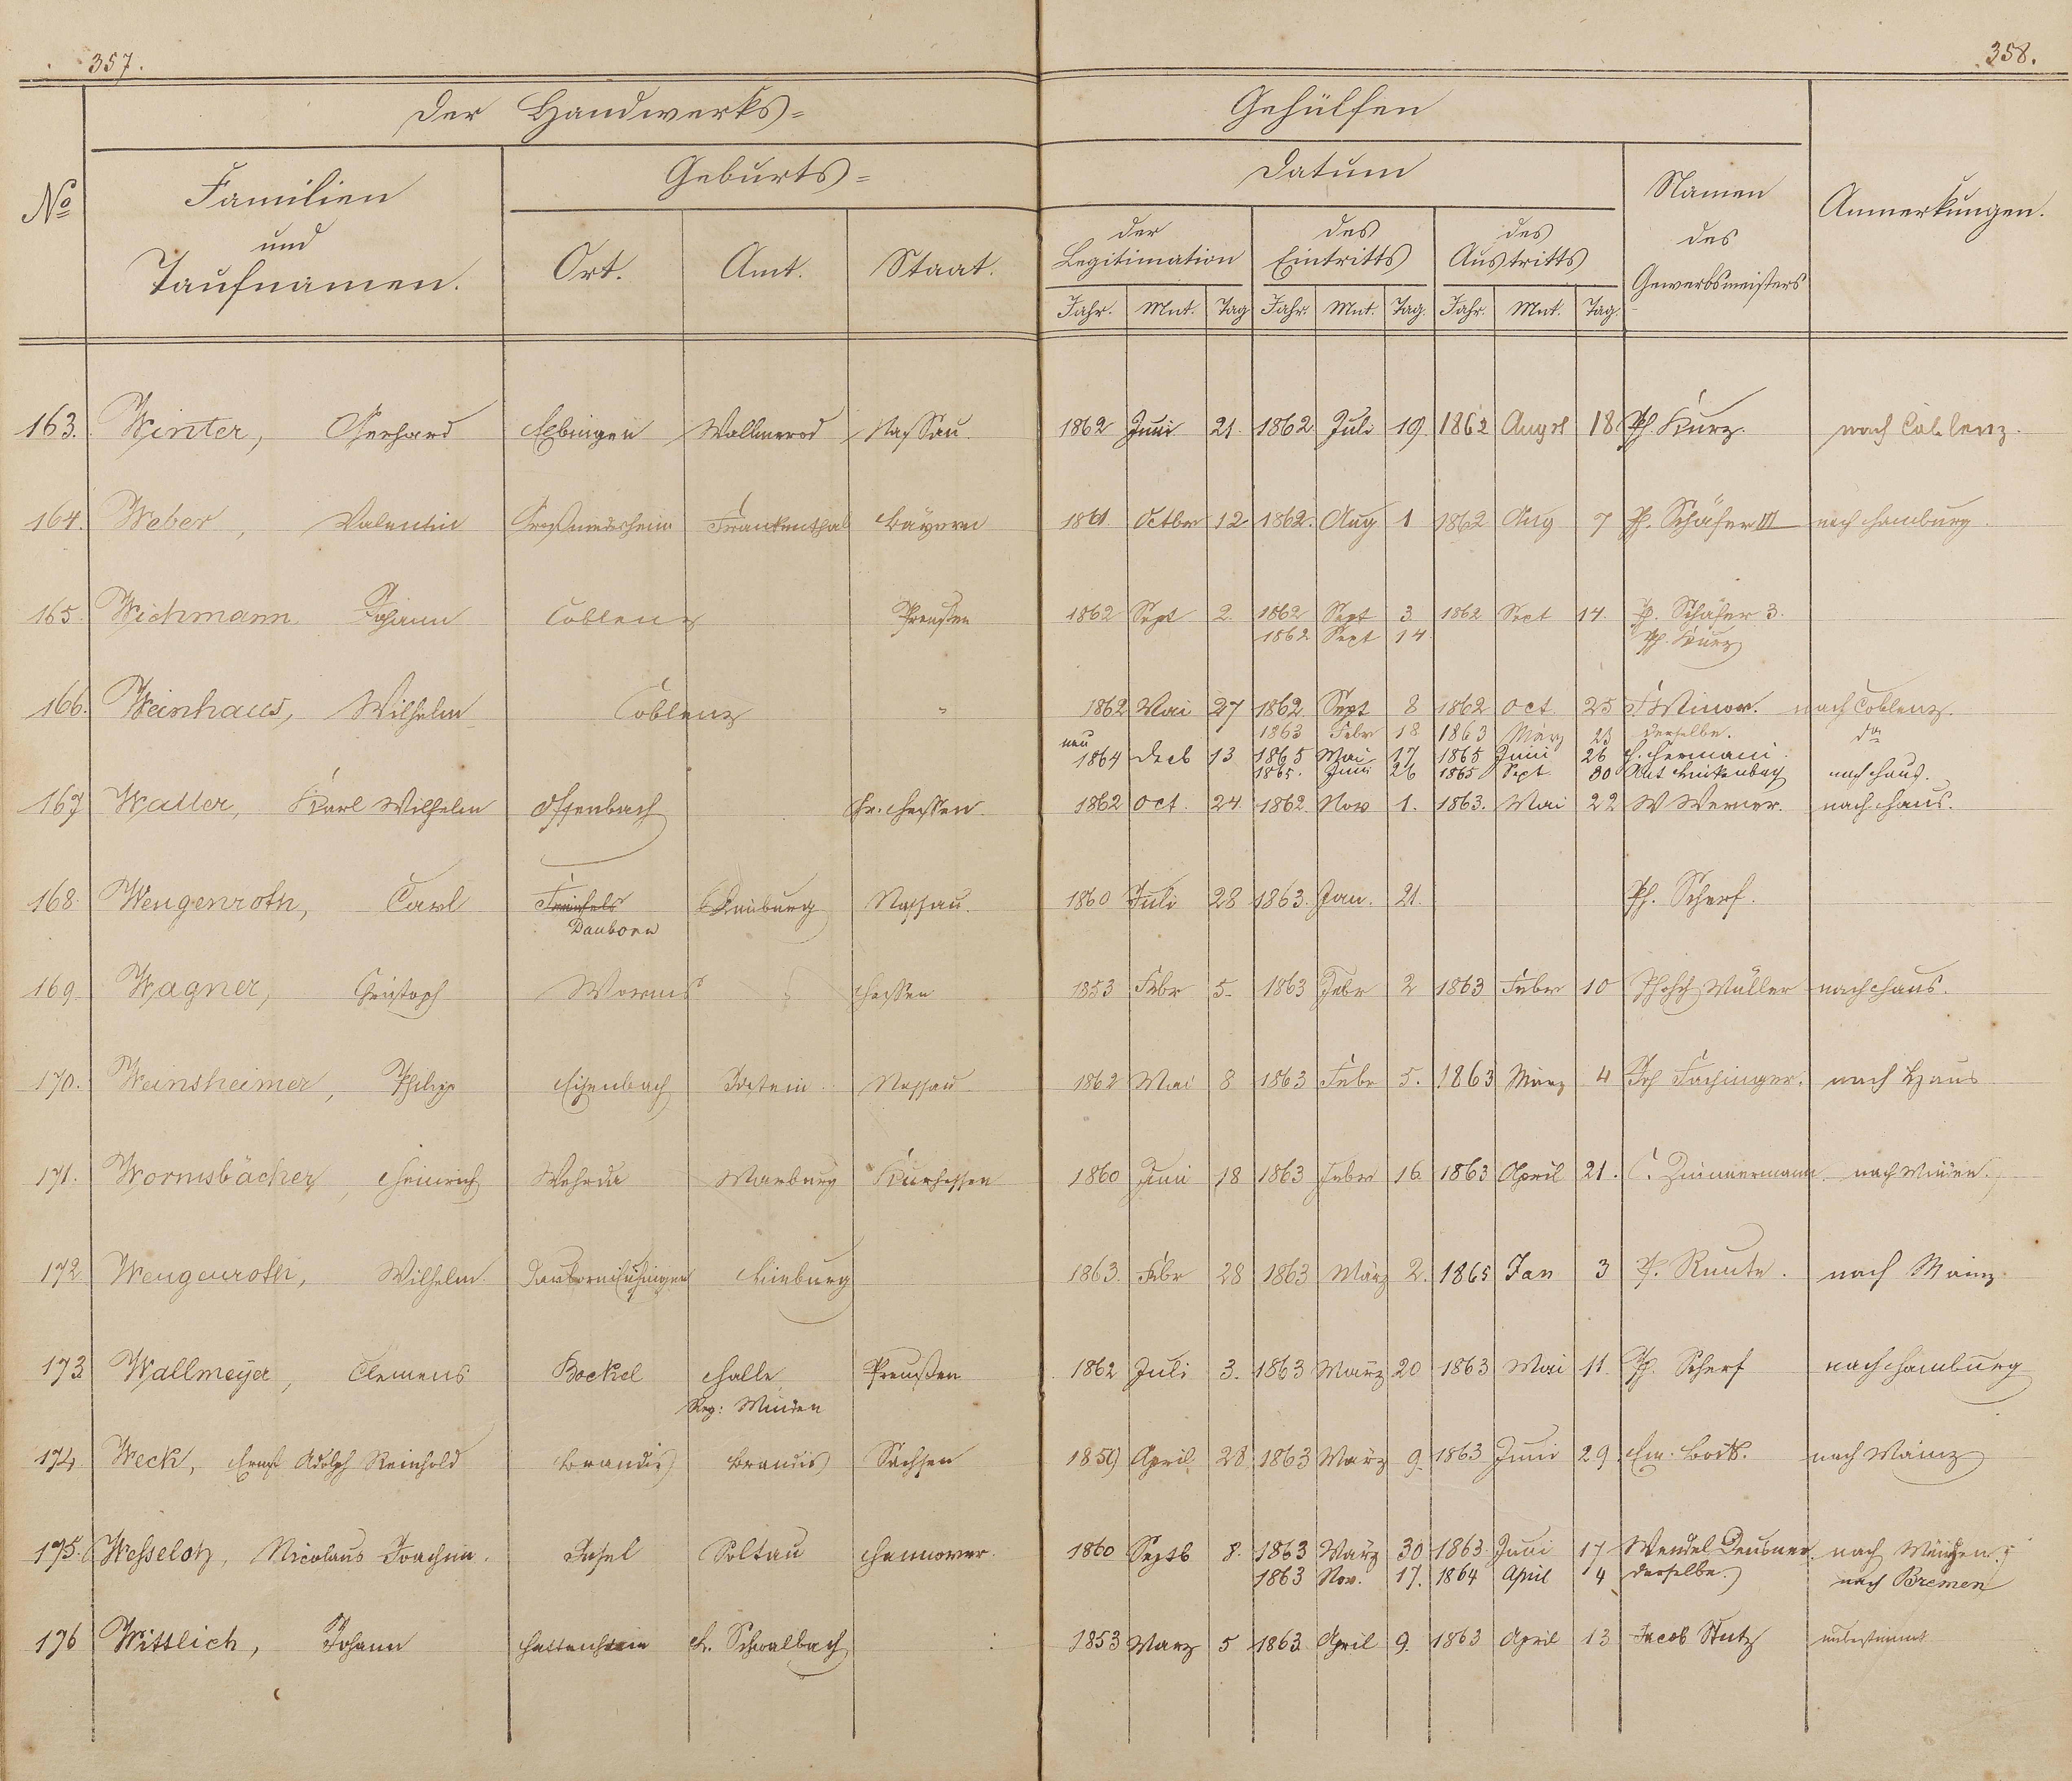 357.
358.
Der Handwerks=
Gehülfen
No
Familien
und
Taufnamen.
Geburts=
Ort.
Amt.
Staat.
Datum
der
Legitimation
des
Eintritts
des
Austritts
Jahr. Mnt. Tag Jahr. Mnt. Tag. Jahr. Mnt. Tag.
Namen
des
Gewerbsmeisters
Anmerkungen.
163. Winter, Gerhard Ebingen Wallmerod Nassau. 1862 Juni 21. 1862 Juli 19. 1862 August 18 Ph. Kurz. nach Coblenz.
164. Weber, Valentin Großniedesheim Frankenthal Bayern 1861 Octber 12 1862. Aug 1 1862 Aug 7 Ph. Schäfer III nach Hamburg.
165. Wichmann Johann Coblenz Preußen 1862 Sept 2. 1862 Sept 3. 1862 Sept 14. Ph. Schäfer 3.
1862 Sept 14 Ph. Kurz
166. Weinhaus, Wilhelm Coblenz " 1862 Mai 27 1862. Sept 8 1862 Oct. 25 F Minor. nach Coblenz.
1863 Febr 18 1863 März 23 derselbe. do
neu
1864 Decb 13 1865 Mai 17 1865 Juni 26 H. Hermani
1865. Juni 26 1865 Sept 30 nach Haus.
167 Walter, Karl Wilhelm Offenbach Gr. Hessen. 1862 Oct. 24. 1862. Nov 1. 1863. Mai 22 W Werner. nach Haus.
168. Wengenroth, Carl Limburg Nassau. 1860 Juli 28 1863. Jan. 21. Ph. Scherf.
Dauborn
169. Wagner, Christoph Worms Hessen 1853 Febr 5. 1863 Febr 2 1863 Febr 10 Müller nach Haus.
170. Weinsheimer, Philipp Eisenbach Idstein Nassau 1862 Mai 8 1863 Febr 5. 1863 März 4 Joh Fachinger. nach Haus
171. Wormsbächer, Heinrich Wehrda Marburg Kurhessen 1860 Juni 18 1863 Febr 16. 1863 April 21. C. Zimmermann. nach Minden.
172 Wengenroth, Wilhelm. Dauborn Limburg 1863. Febr 28 1863 März 2. 1865 Jan 3 Ph. Kunte. nach Mainz.
173. Wallmeyer, Clemens Bockel Halle Preußen 1862 Juli 3. 1863 März 20 1863 Mai 11. Ph. Scherf nach Hamburg
Reg: Minden
174. Weck, Ernst Adolph Reinhold Brandis Brandis Sachsen 1859 April 28. 1863 März 9. 1863 Juni 29. nach Mainz
175. Wesseloh, Nicolaus Joachim. Insel Soltau Hannover. 1860 Septb 8. 1863 März 30 1863. Juni 17 Wendel Deusner. nach München.
1863 Nov. 17. 1864 April 4 derselbe. nach Bremen
176 Wittlich, Johann Hattenheim L. Schwalbach 1853 März 5 1863. April 9. 1863 April 13 Jacob Stutz unbestimmt